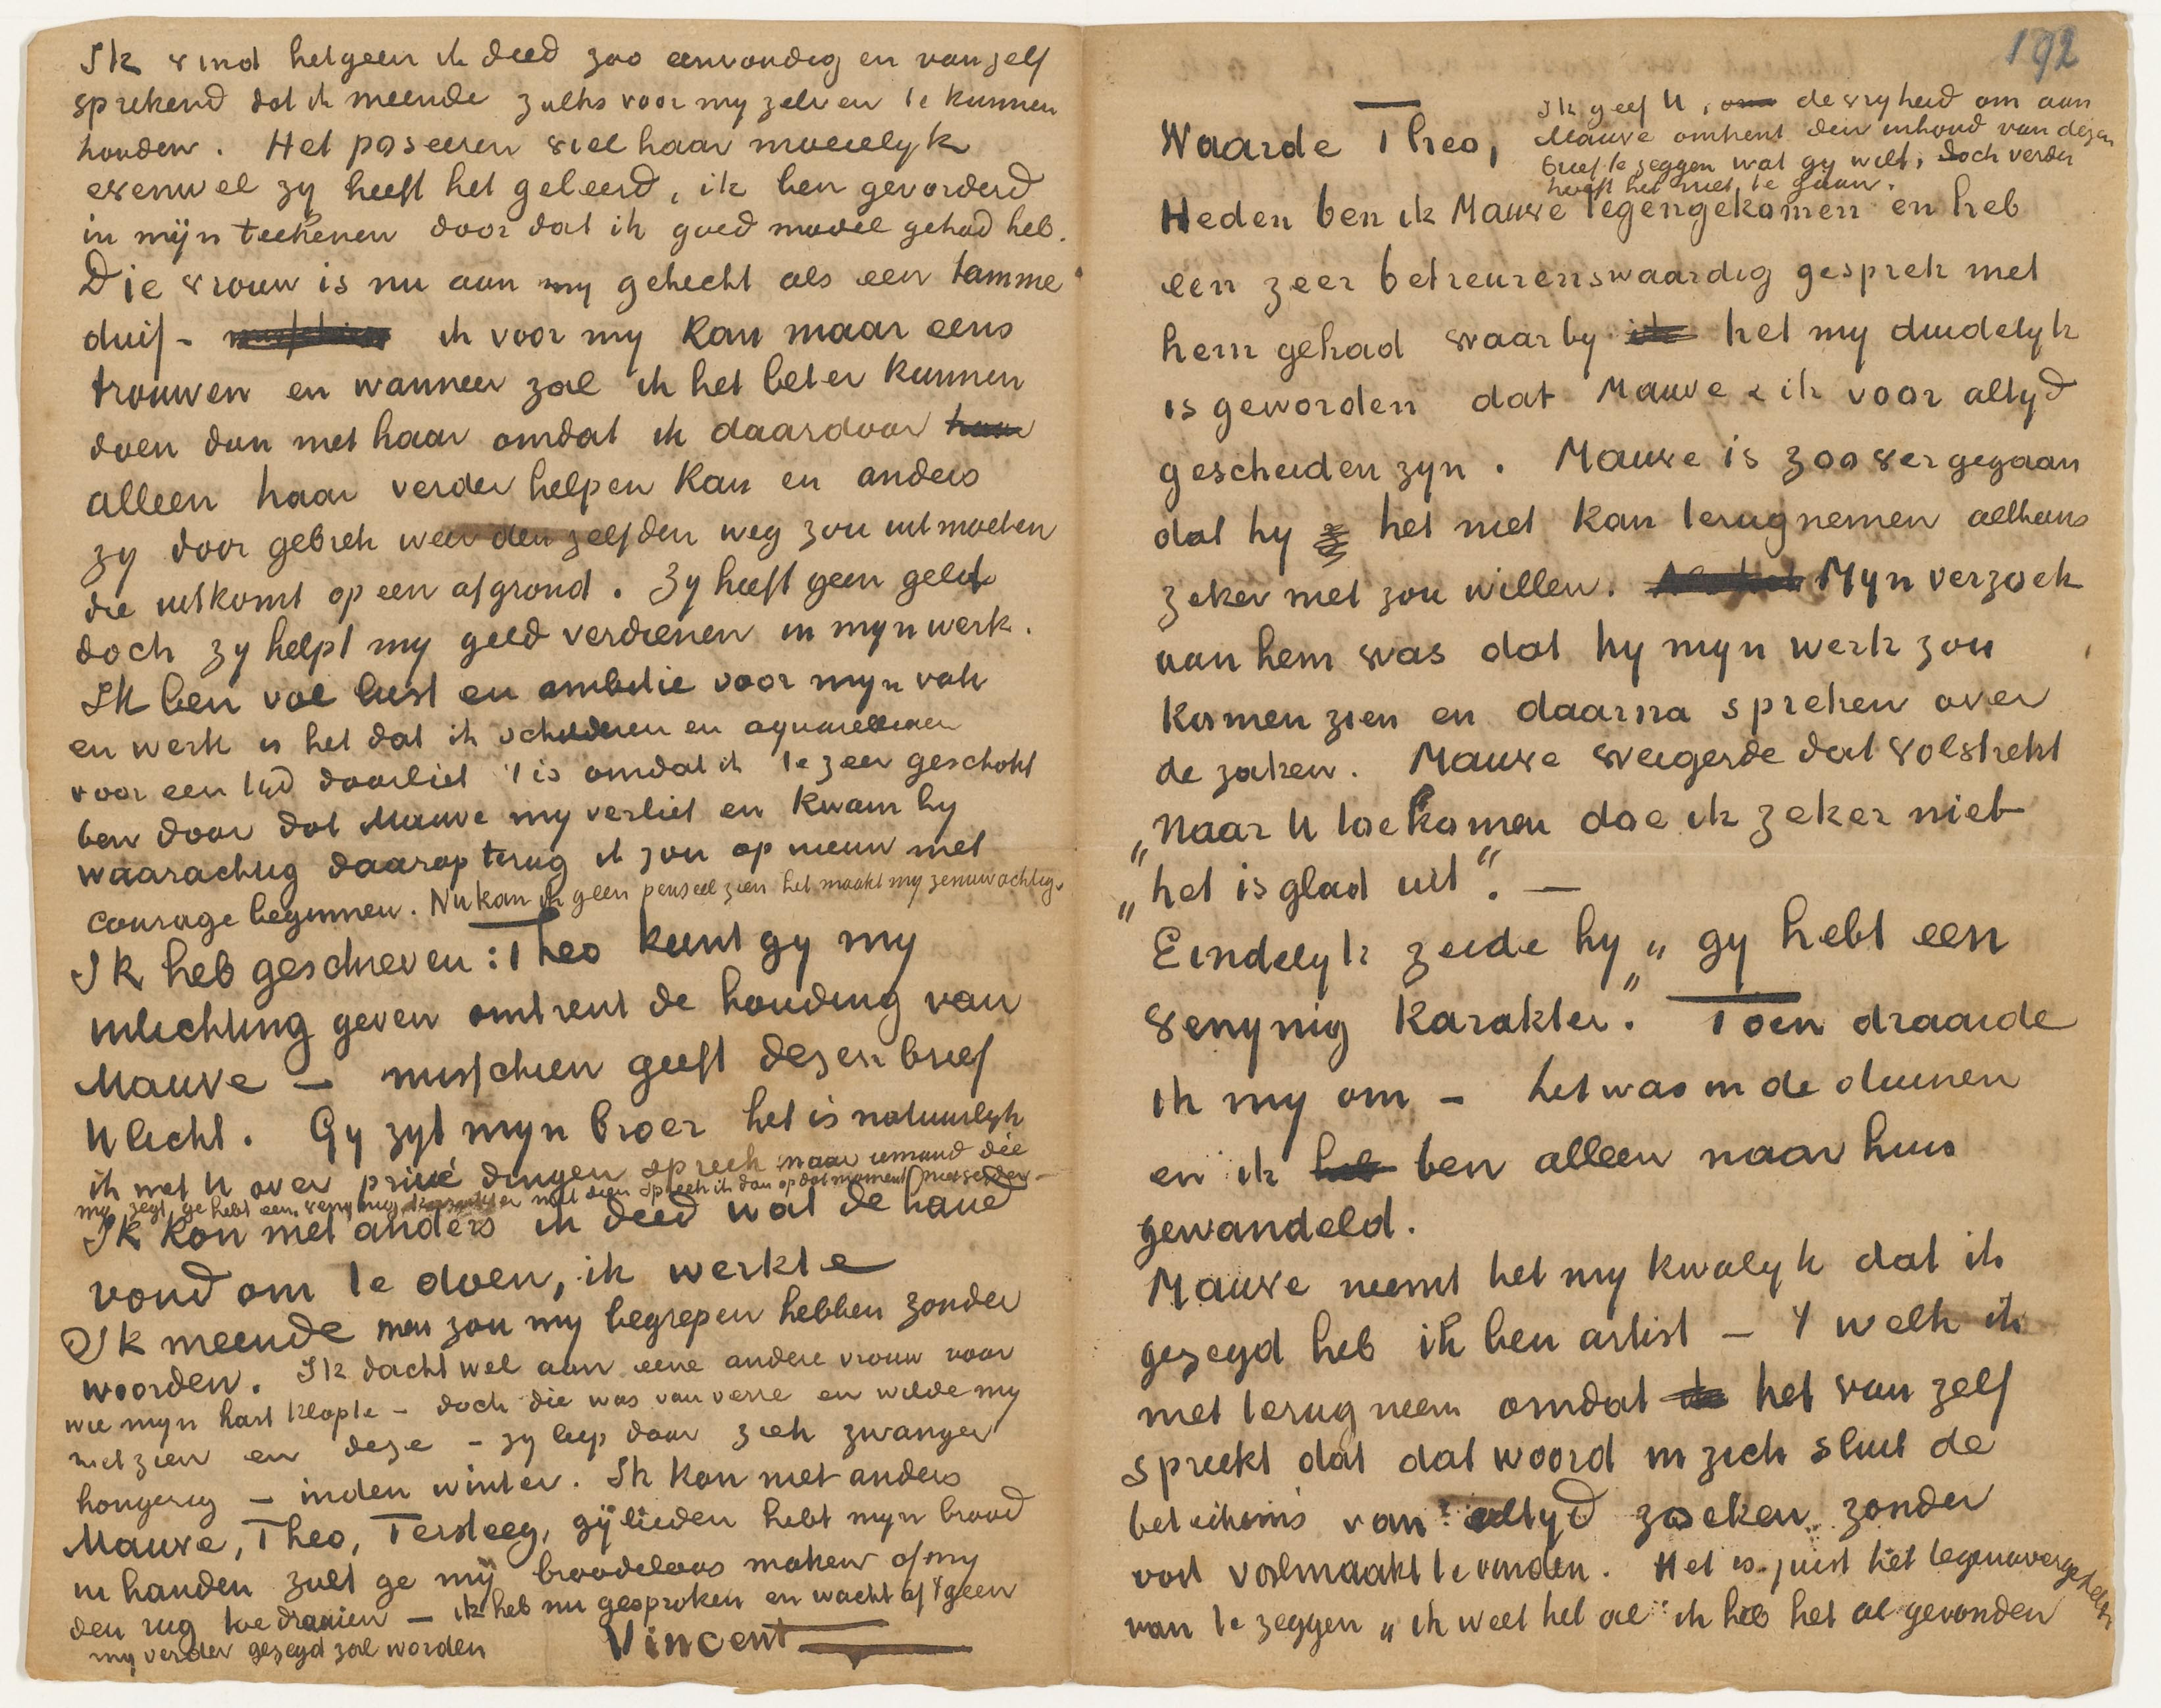 Ik vind hetgeen ik deed zoo eenvoudig en van zelf
sprekend dat ik meende zulks voor my zelven te kunnen
houden. Het poseeren viel haar moeielyk
evenwel zy heeft het geleerd, ik ben gevorderd
in mijn teekenen door dat ik goed model gehad heb.
Die vrouw is nu aan my gehecht als een tamme
duif - ik voor my kan maar eens
trouwen en wanneer zal ik het beter kunnen
doen dan met haar omdat ik daardoor
alleen haar verder helpen kan en anders
zy door gebrek weer den zelfden weg zou uit moeten
die uitkomt op een afgrond. Zy heeft geen geld
doch zy helpt my geld verdienen in myn werk.
Ik ben vol lust en ambitie voor myn vak
en werk is het dat ik schilderen en aquarelleeren
voor een tijd daarliet 't is omdat ik te zeer geschokt
ben door dat Mauve my verliet en kwam hy
waarachtig daarop terug ik zou op nieuw met
courage beginnen. Nu kan ik geen penseel zien het maakt my zenuwachtig.
Ik heb geschreven: Theo kunt gy my
inlichting geven omtrent de houding van
Mauve — misschien geeft dezen brief
U licht. Gy zyt myn broer het is natuurlyk
ik met U over privé dingen spreek maar iemand die
my zegt ge hebt een venynig karakter met dien spreek ik dan op dat moment niet verder —
Ik kon niet anders ik deed wat de hand
vond om te doen, ik werkte
Ik meende men zou my begrepen hebben zonder
woorden. Ik dacht wel aan eene andere vrouw voor
wie myn hart klopte – doch die was van verre en wilde my
niet zien en deze – zy liep daar ziek zwanger
hongerig – in den winter. Ik kon niet anders
Mauve, Theo, Tersteeg, gylieden hebt myn brood
in handen zult ge my broodeloos maken of my
den rug toedraaien — ik heb nu gesproken en wacht af 't geen
my verder gezegd zal worden
Vincent
192
Waarde Theo,
Ik geef U, de vryheid om aan
Mauve omtrent den inhoud van dezen
brief te zeggen wat gy wilt, doch verder
hoeft het niet te gaan.
Heden ben ik Mauve tegengekomen en heb
een zeer betreurenswaardig gesprek met
hem gehad waarby het my duidelyk
is geworden dat Mauve & ik voor altyd
gescheiden zyn. Mauve is zoo ver gegaan
dat hy het niet kan terugnemen althans
zeker niet zou willen. Myn verzoek
aan hem was dat hy myn werk zou
komen zien en daarna spreken over
de zaken. Mauve weigerde dat volstrekt
„Naar U toe komen doe ik zeker niet
„het is glad uit". —
Eindelyk zeide hy „gy hebt een
venynig karakter." Toen draaide
ik my om – het was in de duinen
en ik ben alleen naar huis
gewandeld.
Mauve neemt het my kwalyk dat ik
gezegd heb ik ben artist – 't welk ik
niet terug neem omdat het van zelf
spreekt dat dat woord in zich sluit de
beteekenis van altyd zoeken zonder
ooit volmaakt te vinden. Het is juist het tegenovergestelde
van te zeggen „ik weet het al ik heb het al gevonden